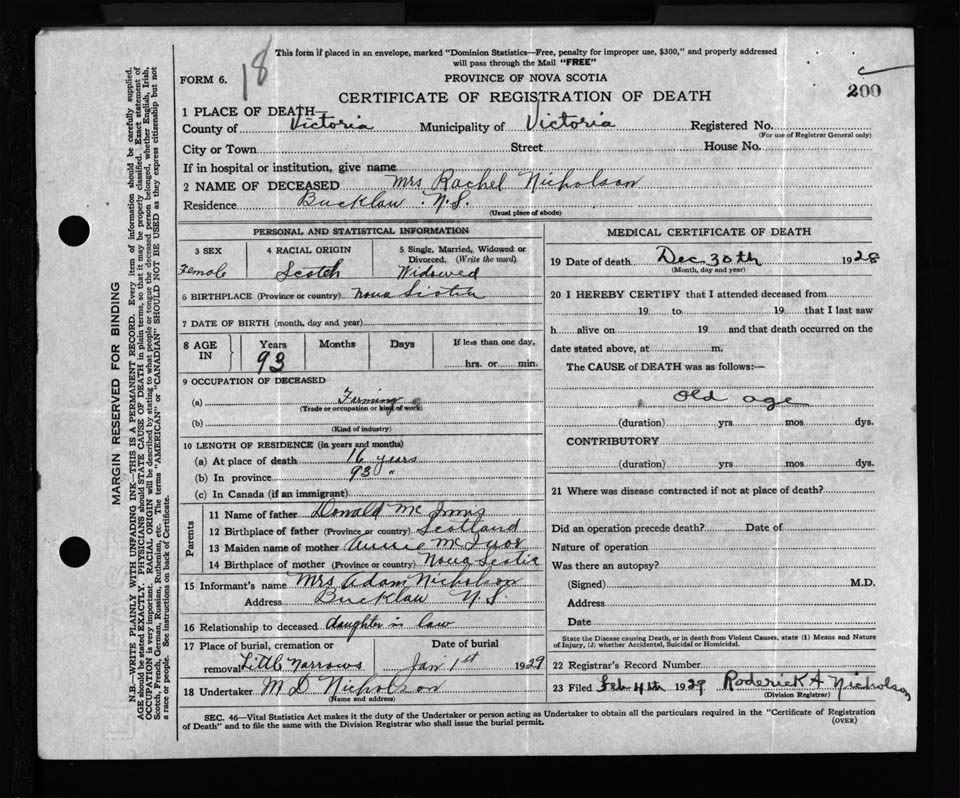 18
This form if placed in an envelope, marked "Dominion Statistics—Free, penalty for improper use, $300," and properly addressed
will pass through the Mail "FREE"
200
FORM 6.
PROVINCE OF NOVA SCOTIA
CERTIFICATE OF REGISTRATION OF DEATH
1 PLACE OF DEATH—
County of Victoria Municipality of Victoria Registered No.
(For use of Registrar General only)
City or Town Street House No.
If in hospital or institution, give name
2 NAME OF DECEASED Mrs Rachel Nicholson
Residence Bucklaw N.S.
(Usual place of abode)
PERSONAL AND STATISTICAL INFORMATION
3 SEX 4 RACIAL ORIGIN 5 Single, Married, Widowed or
Divorced. (Write the word)
Female Scotch Widowed
6 BIRTHPLACE (Province or country) Nova Scotia
7 DATE OF BIRTH (month, day and year)
8 AGE IN Years Months Days If less than one day,
93 hrs. or min.
9 OCCUPATION OF DECEASED
(a) Farming
(Trade or occupation or kind of work)
(b)
(Kind of industry)
10 LENGTH OF RESIDENCE (in years and months)
(a) At place of death 16 years
(b) In province 93 "
(c) In Canada (if an immigrant)
Parents
11 Name of father Donald Mc Innis
12 Birthplace of father (Province or country) Scotland
13 Maiden name of mother Annie McIvor
14 Birthplace of mother (Province or country) Nova Scotia
15 Informant's name Mrs Adam Nicholson
Address Bucklaw N.S.
16 Relationship to deceased daughter in law
17 Place of burial, cremation or Date of burial
removal Little Narrows Jan 1st 1929
18 Undertaker M D Nicholson
(Name and address)
MEDICAL CERTIFICATE OF DEATH
19 Date of death Dec 30th 1928
(Month, day and year)
20 I HEREBY CERTIFY that I attended deceased from
19 to 19 that I last saw
h alive on 19 and that death occurred on the
date stated above, at m.
The CAUSE of DEATH was as follows:—
old age
(duration) yrs mos dys.
CONTRIBUTORY
(duration) yrs mos dys.
21 Where was disease contracted if not at place of death?
Did an operation precede death? Date of
Nature of operation
Was there an autopsy?
(Signed) M.D.
Address
Date
State the Disease causing Death, or in death from Violent Causes, state (1) Means and Nature
of Injury, (2) whether Accidental, Suicidal or Homicidal.
22 Registrar's Record Number
23 Filed Feb 4th 1929 Roderick A Nicholson
(Division Registrar)
SEC. 46—Vital Statistics Act makes it the duty of the Undertaker or person acting as Undertaker to obtain all the particulars required in the "Certificate of Registration
of Death" and to file the same with the Division Registrar who shall issue the burial permit.
(OVER)
MARGIN RESERVED FOR BINDING
N.B.—WRITE PLAINLY WITH UNFADING INK—THIS IS A PERMANENT RECORD. Every item of information should be carefully supplied.
AGE should be stated EXACTLY. PHYSICIANS should STATE CAUSE OF DEATH in plain terms, so that it may be properly classified. Exact statement of
OCCUPATION is very important. RACIAL ORIGIN will be described by stating to what people or tongue the deceased person belonged, whether English, Irish,
Scotch, French, German, Russian, Ruthenian, etc. The terms "AMERICAN" or "CANADIAN" SHOULD NOT BE USED as they express citizenship but not
a race or people. See instructions on back of Certificate.